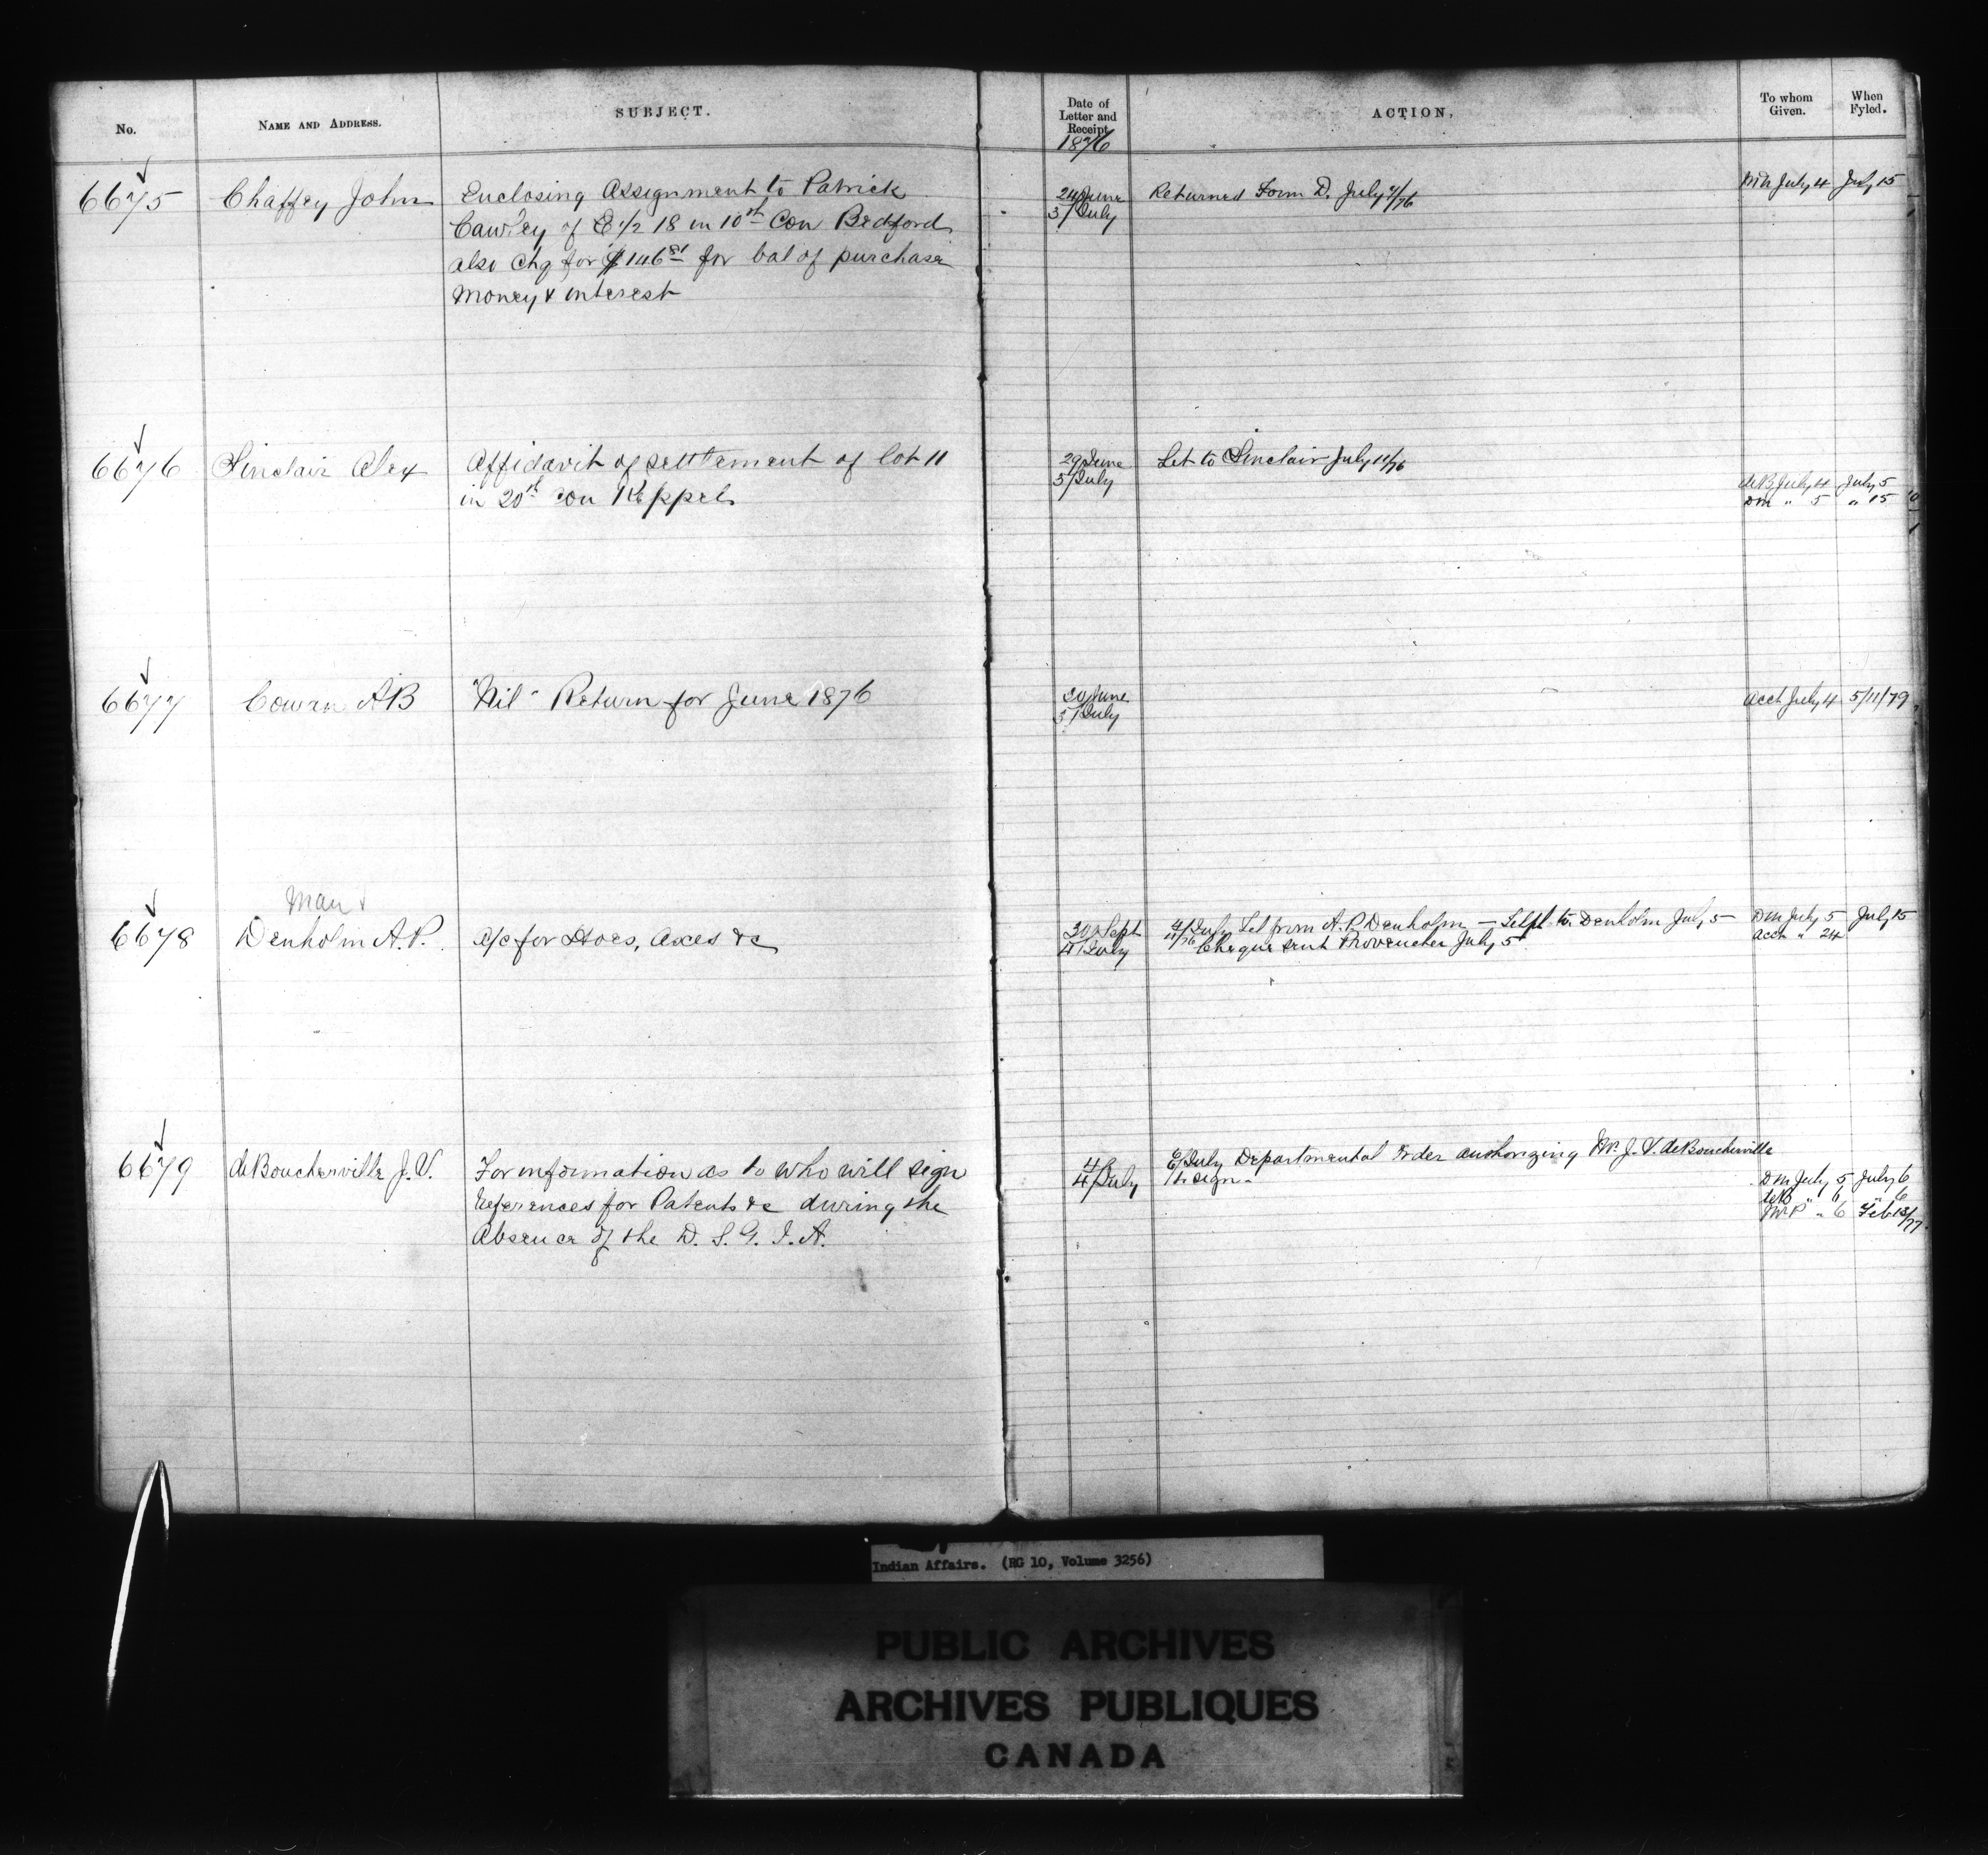 No.
NAME AND ADDRESS.
SUBJECT.
Date of
Letter and
Receipt
1876
ACTION.
To whom
Given.
When
Fyled.
6675
Chaffey John
Enclosing Assignment to Patrick
Cawley of E 1/2 18 in 10th Con Bedford
also Chq for $146 81 for bal of purchase
Money & interest
24 June
3/July
Returned Form D. July 7/76
July 4
July 15
6676
Sinclair Alex
Affidavit of settlement of lot 11
in 20th Con Keppel
29 June
3/July
Let to Sinclair July 11/76
deB July 4
July 5
DM " 5
" 15
6677
Cowan AB
"Nil" Return for June 1876
30 June
3/July
Acct July 4
5/11/79
6678
Man &
Denholm A.P.
a/c for Hoes, Axes &c
30 Sept
4/July
4/July Let from A.P. Denholm — to Denholm July 5
Cheque sent Provencher July 5
DM July 5
July 15
Acct " 24
6679
deBoucherville J.V.
For information as to who will sign
References for Patents &c during the
Absence of the D. S. G. I. A.
4/July
4/July
6/July Departmental Order authorizing Mr. J. V. deBoucherville
to sign.
DM July 5
July 6
deB " 6
" 6
" 6
Feb 13/77
Indian Affairs. (RG 10, Volume 3256)
PUBLIC ARCHIVES
ARCHIVES PUBLIQUES
CANADA